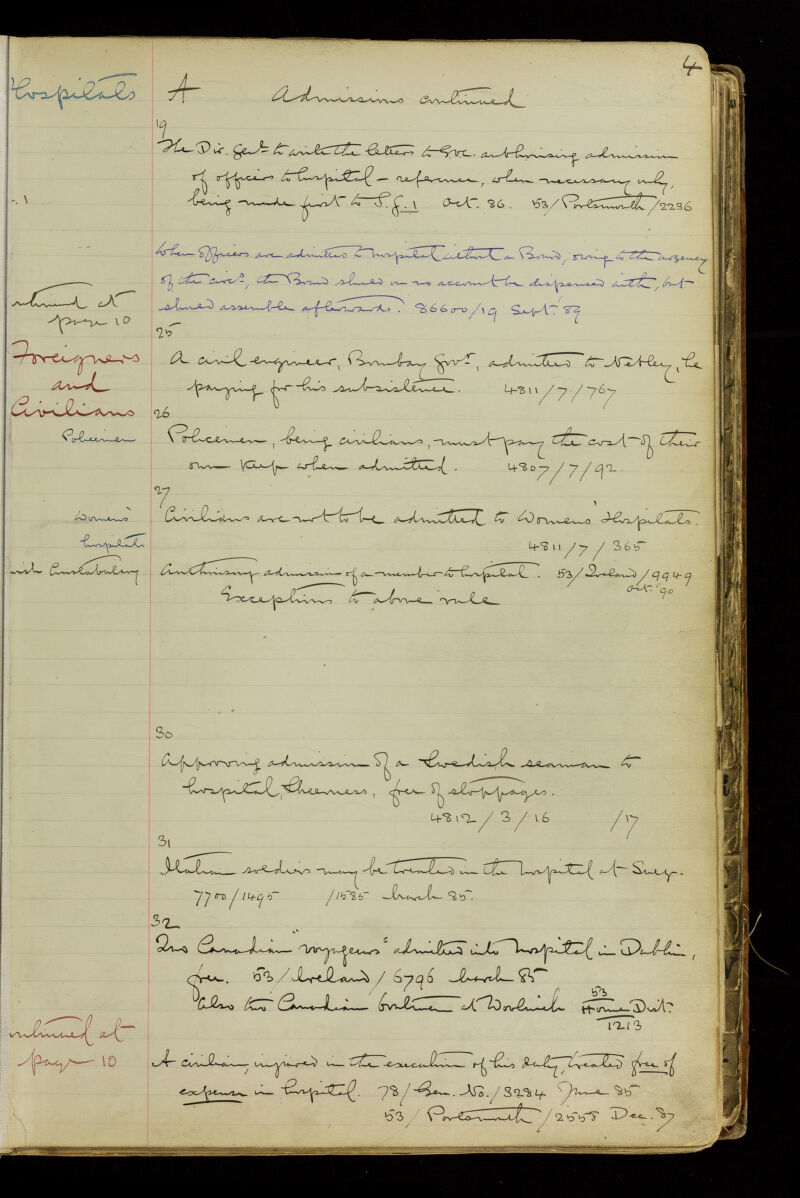 4
Hospitals A Admissions continued
19
The Dir. Genl. to write the letters to G.O.C. authorising admission
of officers to hospital – reference, when necessary only,
being made first to S.G.1 Oct. 86. 53/Portsmouth/2236
.1
When Officers are admitted to hospital without a Board, owing to the urgency
of the circs, the Board should on no account be dispensed with, but
should assemble afterwards. 86600/19 Sept. 89
ntinued at
page 10
25
Foreigners
and
Civilians
A civil engineer, Bombay Govt., admitted to Netley, he
paying for his subsistence. 4811/7/767
26
Policemen
Policemen, being civilians, must pay the cost of their
own keep when admitted. 4807/7/92.
27
Womens'
hospitals
Civilians are not to be admitted to Womens' Hospitals.
4811/7/365
rish Constabulary
Authorising admission of a member to hospital. 53/Ireland/9949
Oct. 90
Exceptions to above rule
30
Approving admission of a Swedish seaman to
hospital, Sheerness, free of stoppages.
4812/3/16 /17
31
Italian soldiers may be treated in the hospital at Suez.
7700/1495 /1585 March 85.
32
Two Canadian "voyageurs" admitted into hospital in Dublin,
free. 53/Ireland/6796 March 85
Also two Canadian boatmen at Woolwich 53
Home Dist.
1213
ontinued at
page 10
A civilian, injured in the execution of his duty, treated free of
expense in hospital. 78/Gen. No./3284 June 85
53/Portsmouth/2558 Dec. 87